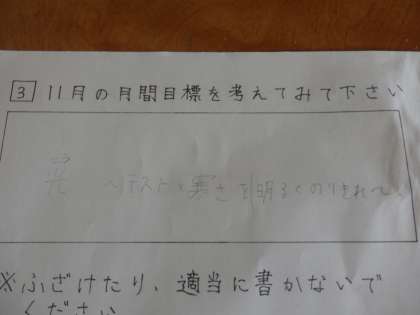 3 11月の月間目標を考えてみて下さい
光 〜テスト、寒さを明るくのりきれ〜
※ふざけたり、適当に書かないで
ください